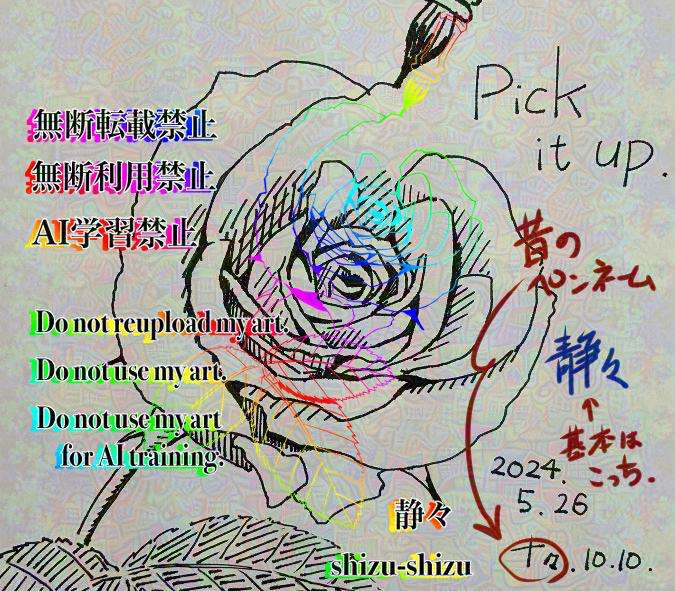 Pick
it up.
無断転載禁止
無断利用禁止
AI学習禁止
昔の
ペンネーム
Do not reupload my art.
Do not use my art.
Do not use my art
for AI training.
静々
↑
基本は
こっち.
2024.
5.26
静々
shizu-shizu
.10.10.